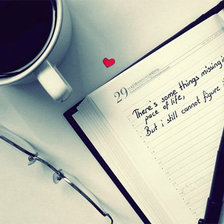 29
There's some things missing
pace of life,
But i still cannot figure